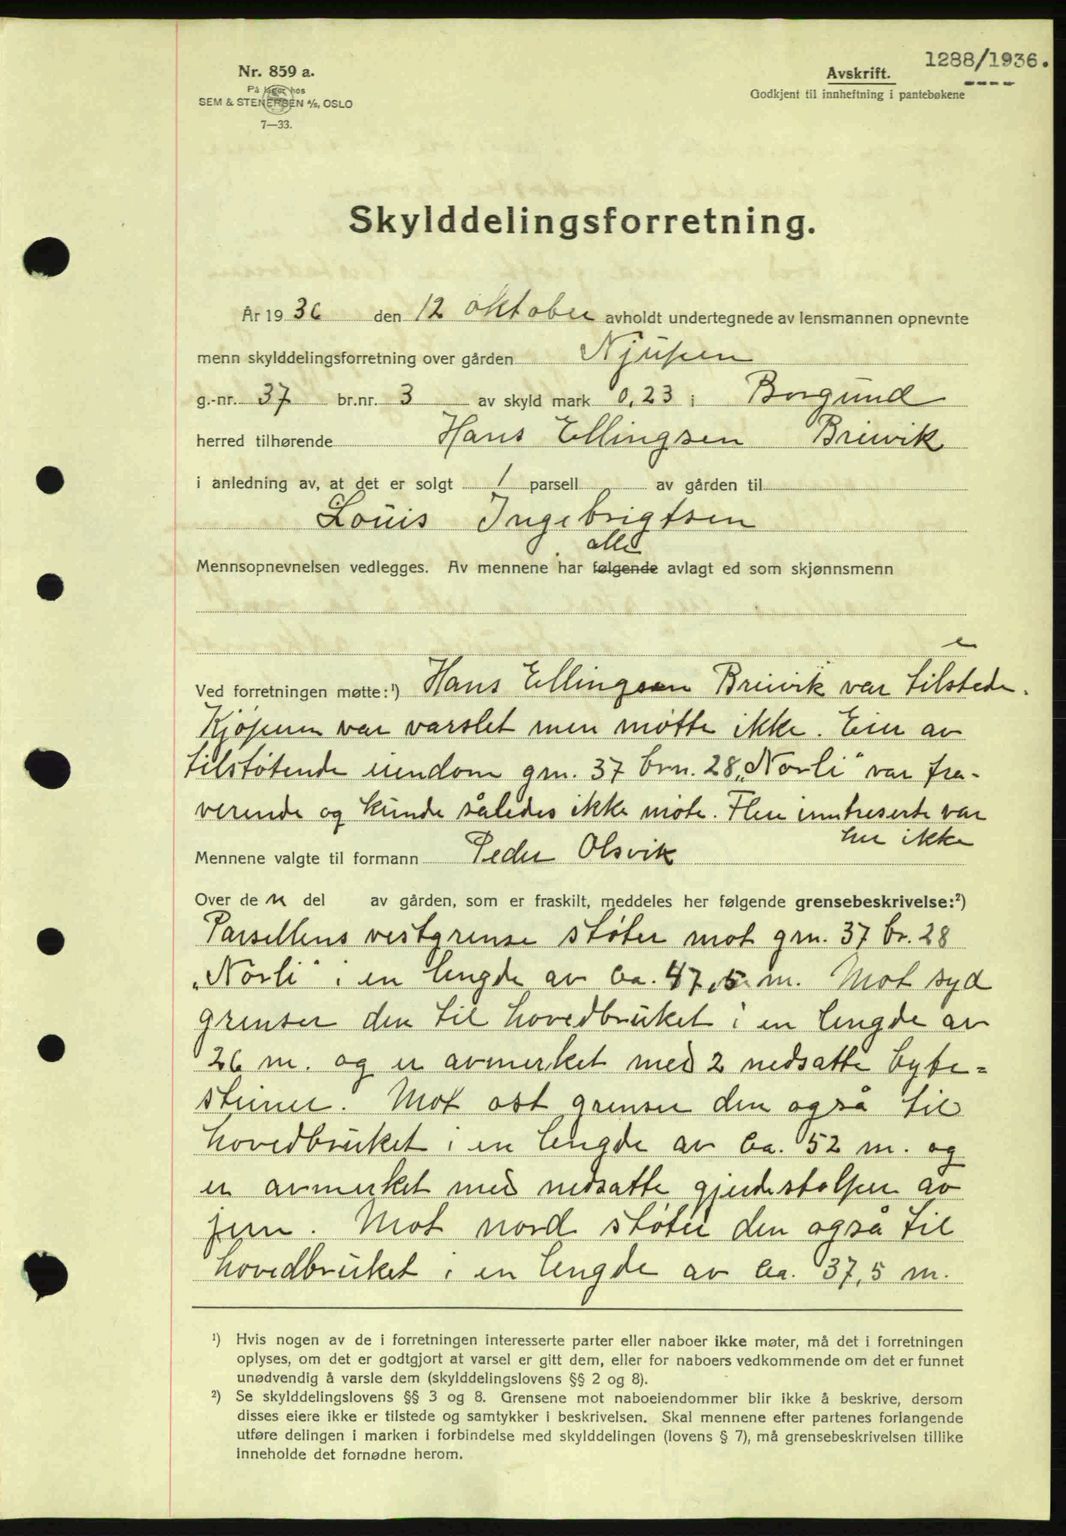 1288/1936.
Nr. 859 a.
På lager hos
SEM & STENERSEN A/S, OSLO
7—33.
Avskrift.
Godkjent til innheftning i pantebøkene
Skylddelingsforretning.
År 1936 den 12 oktober avholdt undertegnede av lensmannen opnevnte
menn skylddelingsforretning over gården Njupen
g.-nr. 37 br.nr. 3 av skyld mark 0,23 i Borgund
herred tilhørende Hans Ellingsen Breivik
i anledning av, at det er solgt 1 parsell av gården til
Louis Ingebrigtsen
alle
Mennsopnevnelsen vedlegges. Av mennene har følgende avlagt ed som skjønnsmenn
Ved forretningen møtte:¹) Hans Ellingsen Breivik var tilstede.
Kjøperen var varslet men møtte ikke. Eier av
tilstøtende eiendom grn. 37 brn. 28 „Norli" var fra-
verende og kunde således ikke møte. Flere interesserte var
her ikke
Mennene valgte til formann Peder Olsvik
Over den del av gården, som er fraskilt, meddeles her følgende grensebeskrivelse:²)
Parsellens vestgrense støter mot grn. 37 br. 28
„Norli" i en lengde av ca. 47,5 m. Mot syd
grenser den til hovedbruket i en lengde av
26 m. og er avmerket med 2 nedsatte byte=
steiner. Mot ost grenser den også til
hovedbruket i en lengde av ca. 52 m. og
er avmerket med nedsatte gjerdestolper av
jern. Mot nord støter den også til
hovedbruket i en lengde av ca. 37,5 m.
¹) Hvis nogen av de i forretningen interesserte parter eller naboer ikke møter, må det i forretningen
oplyses, om det er godtgjort at varsel er gitt dem, eller for naboers vedkommende om det er funnet
unødvendig å varsle dem (skylddelingslovens §§ 2 og 8).
²) Se skylddelingslovens §§ 3 og 8. Grensene mot naboeiendommer blir ikke å beskrive, dersom
disses eiere ikke er tilstede og samtykker i beskrivelsen. Skal mennene efter partenes forlangende
utføre delingen i marken i forbindelse med skylddelingen (lovens § 7), må grensebeskrivelsen tillike
inneholde det fornødne herom.